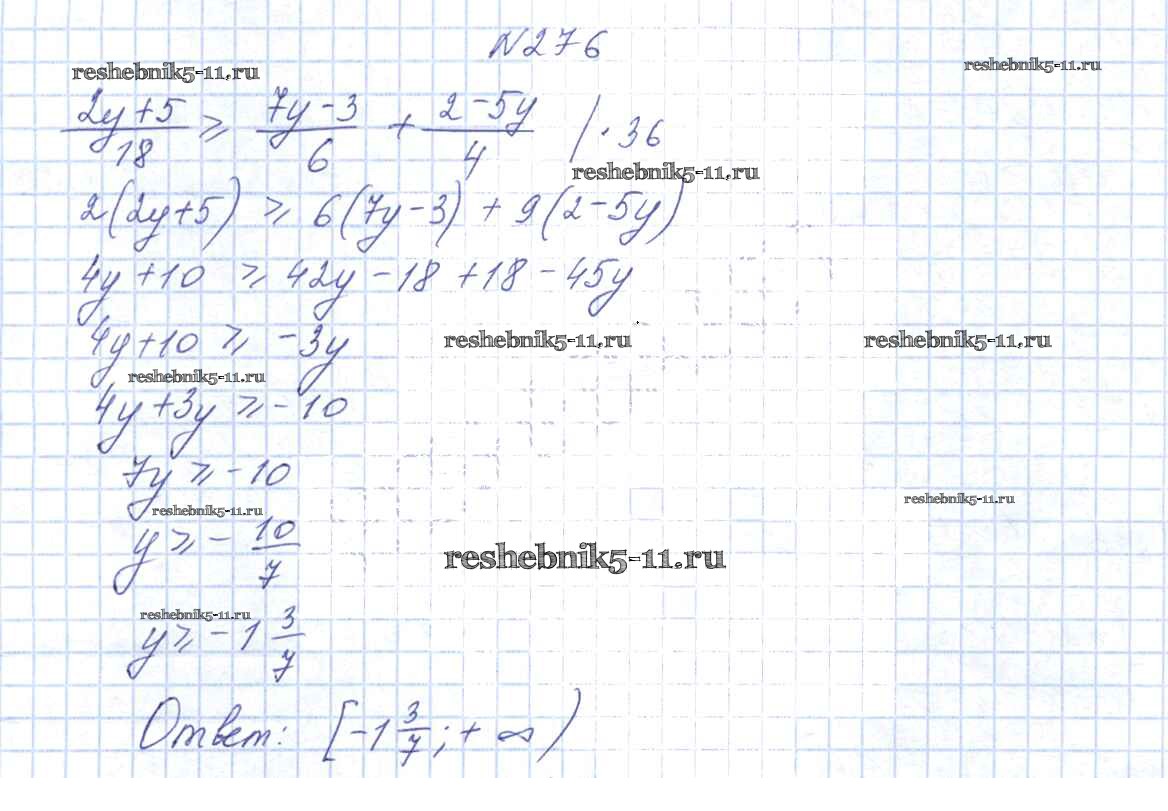 N276
reshebnik5-11.ru reshebnik5-11.ru
(2y+5)/18 ⩾ (7y-3)/6 + (2-5y)/4 | · 36
reshebnik5-11.ru
2(2y+5) ⩾ 6(7y-3) + 9(2-5y)
4y+10 ⩾ 42y-18+18-45y
4y+10 ⩾ -3y
reshebnik5-11.ru reshebnik5-11.ru
reshebnik5-11.ru
4y+3y ⩾ -10
7y ⩾ -10
reshebnik5-11.ru
reshebnik5-11.ru
y ⩾ - 10/7
reshebnik5-11.ru
reshebnik5-11.ru
y ⩾ -1 3/7
Ответ: [-1 3/7; + ∞)